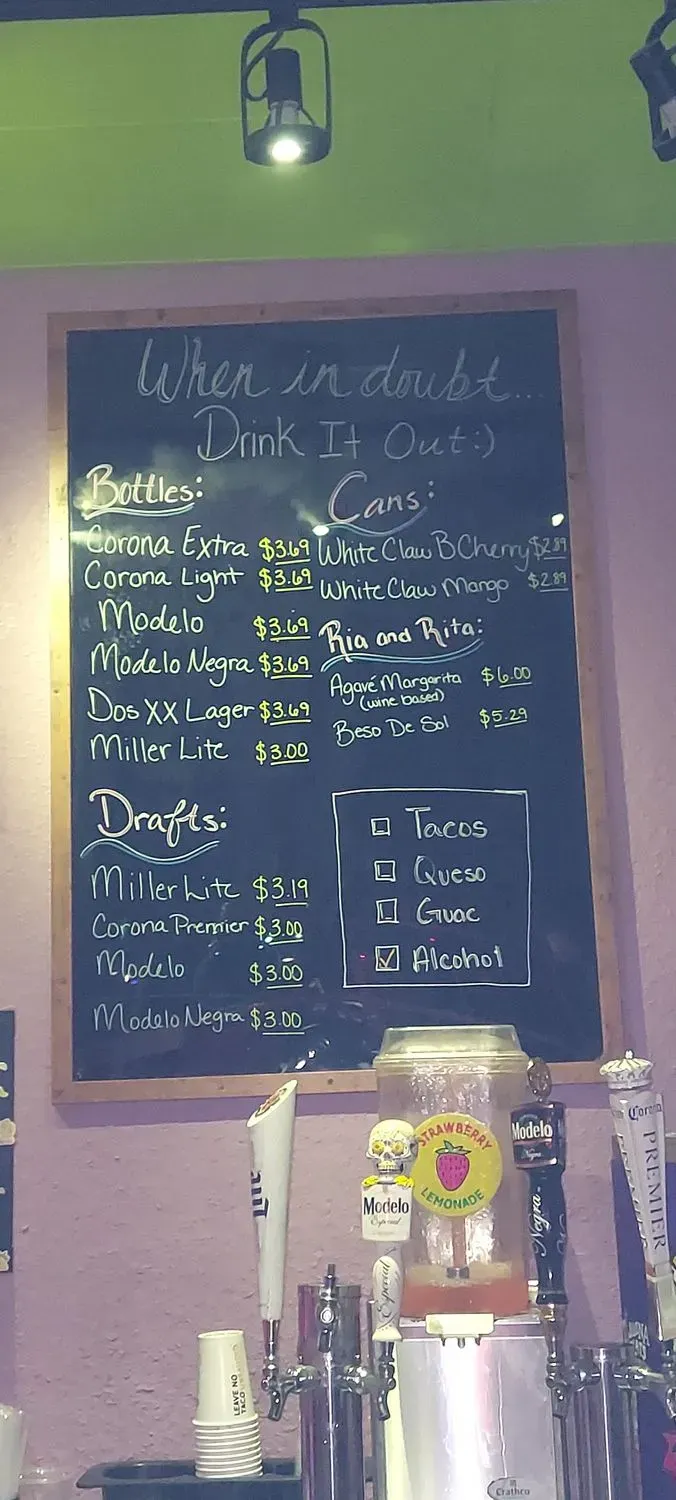 When in doubt...
Drink It Out:)
Bottles:
Corona Extra $3.69
Corona Light $3.69
Modelo $3.69
Modelo Negra $3.69
Dos XX Lager $3.69
Miller Lite $3.00
Drafts:
Miller Lite $3.19
Corona Premier $3.00
Modelo $3.00
Modelo Negra $3.00
Cans:
White Claw B Cherry $2.89
White Claw Mango $2.89
Ria and Rita:
Agavé Margarita $6.00
(wine based)
Beso De Sol $5.29
Tacos
Queso
Guac
Alcohol
STRAWBERRY
LEMONADE
Lite
Modelo
Especial
Especial
Modelo
Negra
Negra
Corona
PREMIER
LEAVE NO
TACO
Crathco